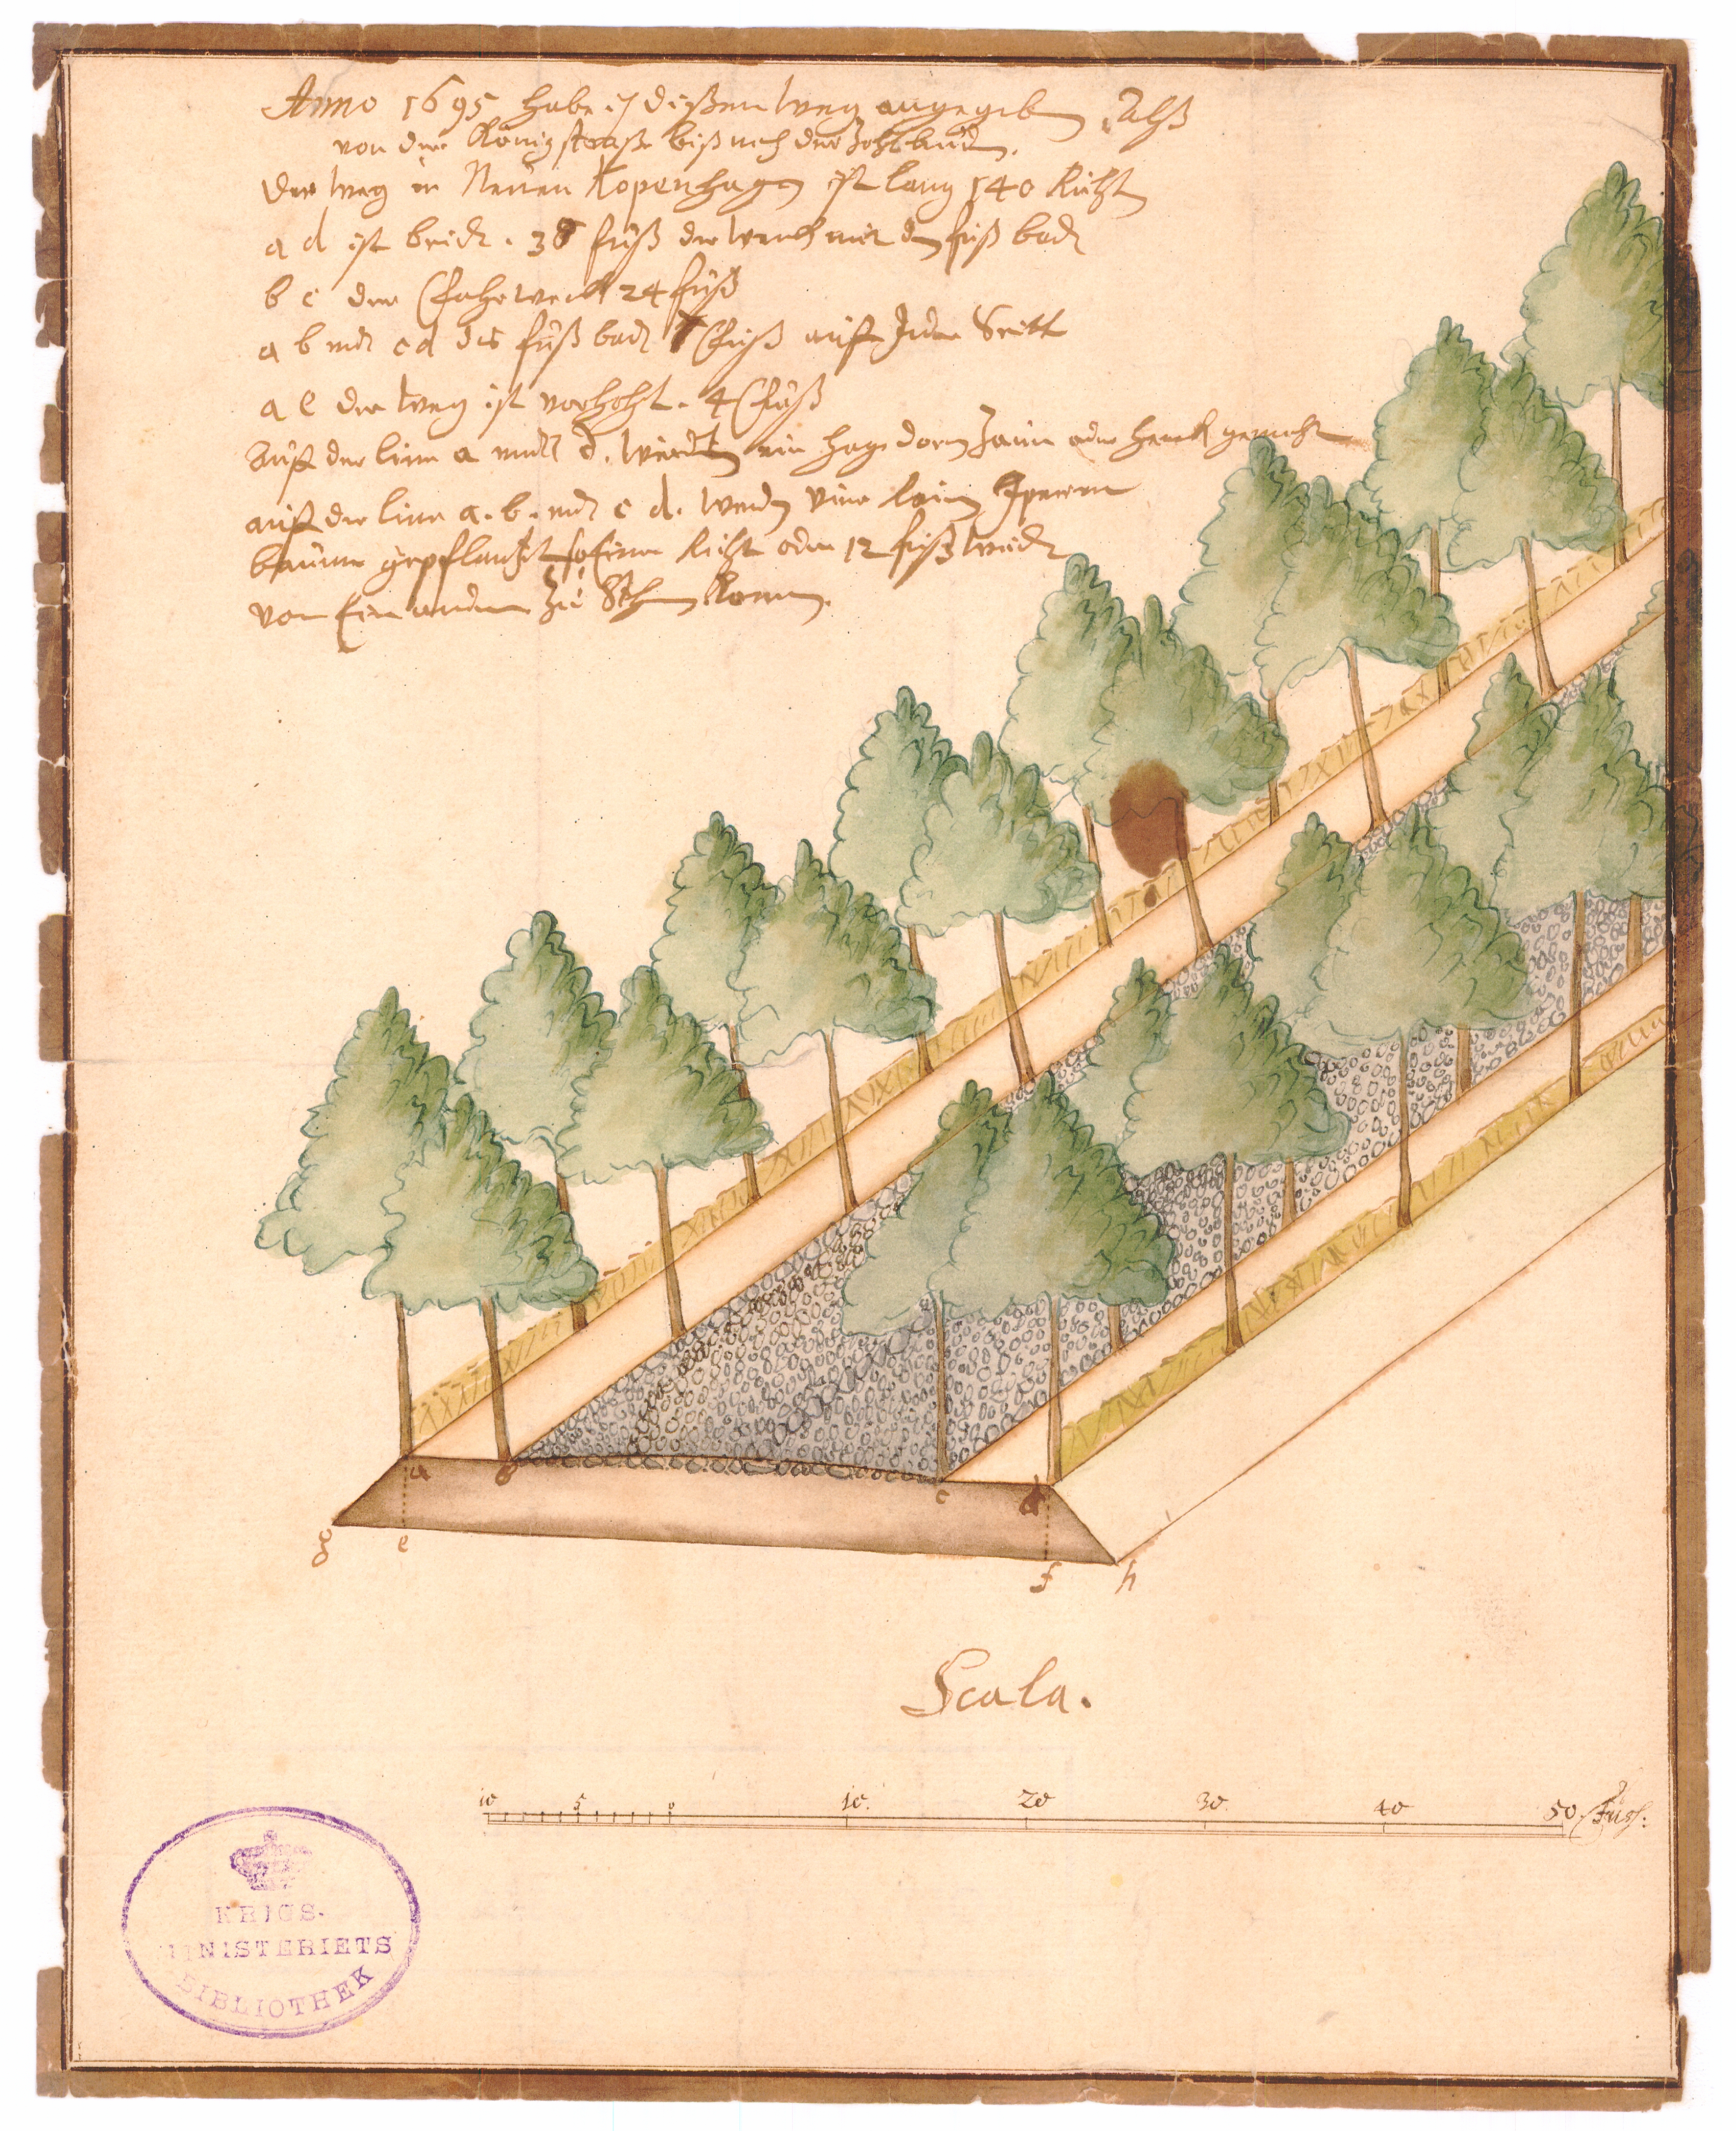 Anno 1695 habe ich dißen weg angegeben. Alß
von der Königstraße biß nach der Zohlbud.
der weg in Neuen Kopenhagen ist lang 140 Ruht
a d ist breidt. 38 fuß der wech mit den fuß bad
b c der Fahrwech 24 fuß
a b und c d des fuß bad 7 Fuß auff Jeder Seitt
a e der weg ist vorhöht. 4 Fuß
Auf der linn a und d. werdt ein hagedorn Zaun oder Heeck gemacht
auf der linn a. b. und c d. werden
baüme gepflantzt so Einer Ruht oder 12 fuß weidt
von Ein ander Zu Stehen komen.
a
b
c
d
g
e
f
h
Scala.
10 5 0 10. 20 30. 40 50. Fuss:
KRIGS-
MINISTERIETS
BIBLIOTHEK